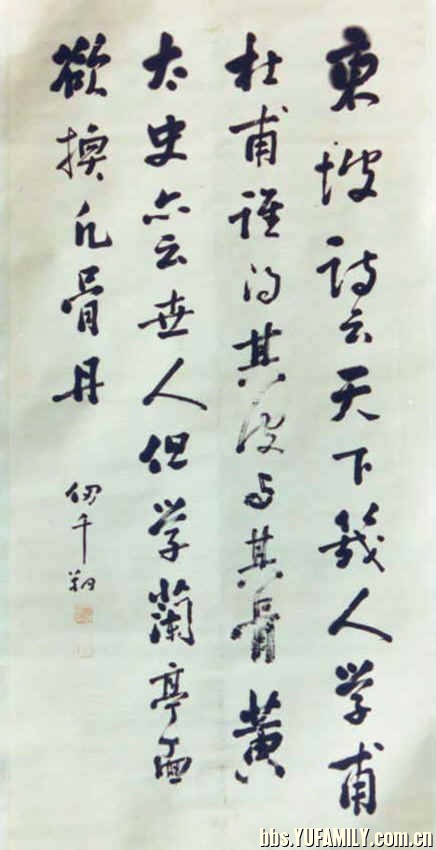 東坡詩云天下幾人学甫
杜甫誰得其皮与其骨黄
太史亦云世人但学蘭亭面
欲換凡骨丹
仞千翔
bbs.YUFAMILY.com.cn